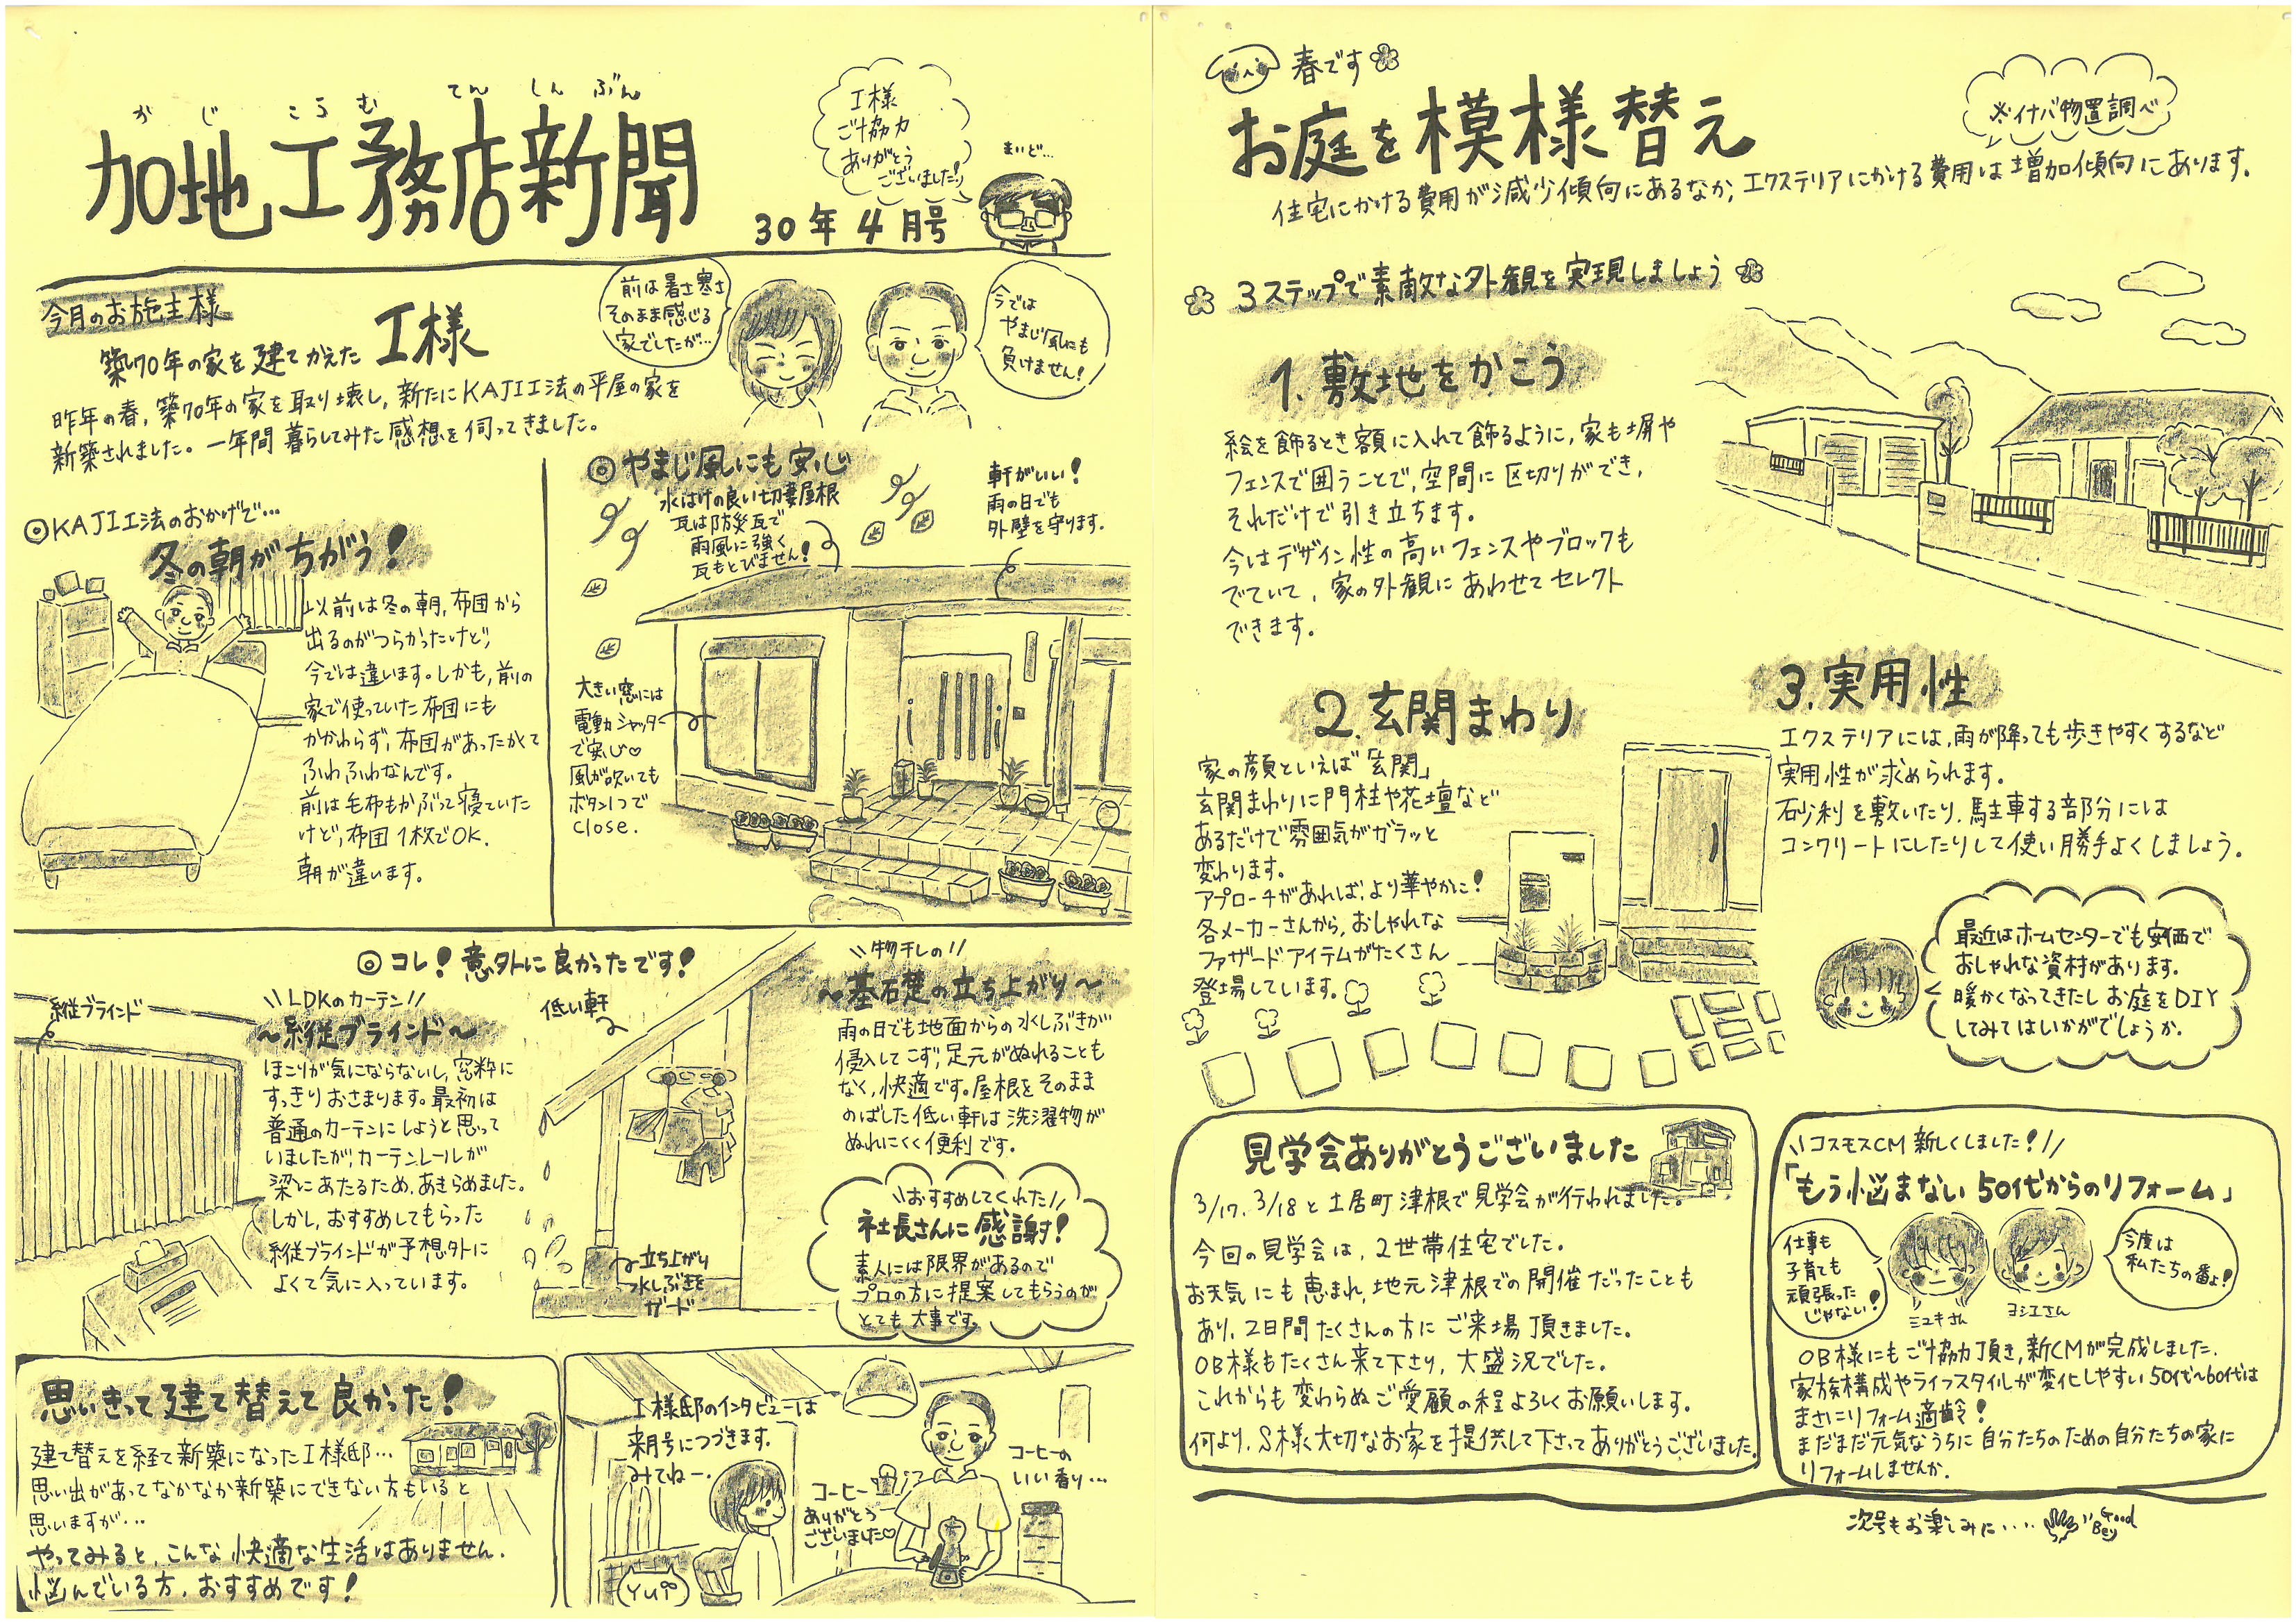 かじこうむてんしんぶん
加地工務店新聞
30年4月号
I様
ご協力
ありがとう
ございました!!
まいど…
今月のお施主様
築70年の家を建てかえた I様
昨年の春、築70年の家を取り壊し、新たにKAJI工法の平屋の家を
新築されました。一年間暮らしてみた感想を伺ってきました。
前は暑さ寒さ
そのまま感じる
家でしたが…
今では
やまじ風にも
負けません!
◎KAJI工法のおかげで…
冬の朝がちがう!
以前は冬の朝、布団から
出るのがつらかったけど、
今では違います。しかも、前の
家で使っていた布団にも
かかわらず、布団があったかくて
ふわふわなんです。
前は毛布もかぶって寝ていた
けど、布団1枚でOK.
朝が違います。
◎やまじ風にも安心
水はけの良い切妻屋根
瓦は防災瓦で
雨風に強く
瓦もとびません!
軒がいい!
雨の日でも
外壁を守ります。
大きい窓には
電動シャッター
で安心♡
風が吹いても
ボタン1つで
close.
◎コレ!意外に良かったです!
縦ブラインド
\\LDKのカーテン//
～縦ブラインド～
ほこりが気にならないし、窓枠に
すっきりおさまります。最初は
普通のカーテンにしようと思って
いましたが、カーテンレールが
梁にあたるため、あきらめました。
しかし、おすすめしてもらった
縦ブラインドが予想外に
よくて気に入っています。
低い軒
立ち上がり
水しぶきを
ガード
\\物干しの//
～基礎の立ち上がり～
雨の日でも地面からの水しぶきが
侵入してこず、足元がぬれることも
なく、快適です。屋根をそのまま
のばした低い軒は洗濯物が
ぬれにくく便利です。
\\おすすめしてくれた//
社長さんに感謝!
素人には限界があるので
プロの方に提案してもらうのが
とても大事です。
思いきって建て替えて良かった!
建て替えを経て新築になったI様邸…
思い出があってなかなか新築にできない方もいると
思いますが…
やってみると、こんな快適な生活はありません.
悩んでいる方、おすすめです!
I様邸のインタビューは
来月号につづきます.
みてねー.
コーヒー
ありがとう
ございました♡
コーヒーの
いい香り…
YUi
春です
お庭を模様替え
※イナバ物置調べ
住宅にかける費用が減少傾向にあるなか、エクステリアにかける費用は増加傾向にあります。
3ステップで素敵な外観を実現しましょう
1.敷地をかこう
絵を飾るとき額に入れて飾るように、家も塀や
フェンスで囲うことで、空間に区切りができ、
それだけで引き立ちます。
今はデザイン性の高いフェンスやブロックも
でていて、家の外観にあわせてセレクト
できます。
2.玄関まわり
家の顔といえば「玄関」
玄関まわりに門柱や花壇など
あるだけで雰囲気がガラッと
変わります。
アプローチがあれば、より華やかに!
各メーカーさんから、おしゃれな
ファザードアイテムがたくさん
登場しています。
3.実用性
エクステリアには、雨が降っても歩きやすくするなど
実用性が求められます。
砂利を敷いたり、駐車する部分には
コンクリートにしたりして使い勝手よくしましょう。
最近はホームセンターでも安価で
おしゃれな資材があります。
暖かくなってきたし お庭をDIY
してみてはいかがでしょうか.
見学会ありがとうございました
3/17、3/18と土居町津根で見学会が行われました。
今回の見学会は、2世帯住宅でした。
お天気にも恵まれ、地元津根での開催だったことも
あり、2日間たくさんの方にご来場頂きました。
OB様もたくさん来て下さり、大盛況でした。
これからも変わらぬご愛顧の程よろしくお願いします。
何より、S様、大切なお家を提供して下さってありがとうございました。
\\コスモスCM新しくしました!//
「もう悩まない50代からのリフォーム」
仕事も
子育ても
頑張った
じゃない!
ミユキさん
ヨシエさん
今度は
私たちの番よ!
OB様にもご協力頂き、新CMが完成しました.
家族構成やライフスタイルが変化しやすい50代～60代は
まさにリフォーム適齢!
まだまだ元気なうちに自分たちのための自分たちの家に
リフォームしませんか.
次号もお楽しみに‥‥
Good
Bey